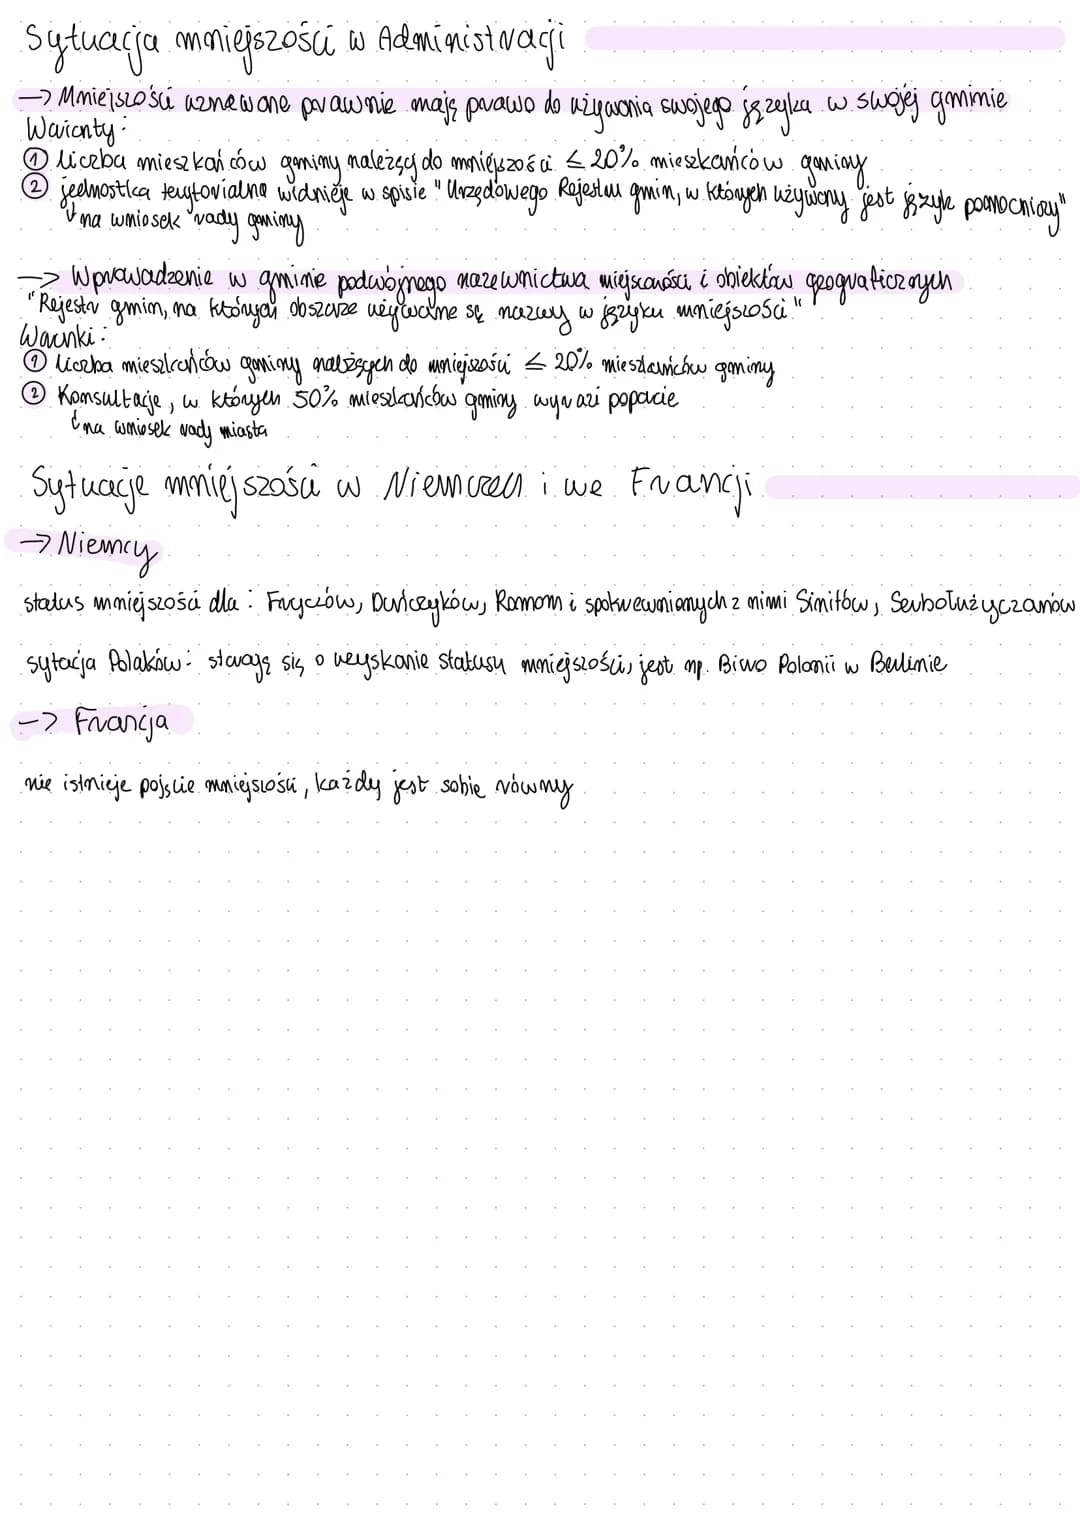 Sytuacja mniejszości w Administracji
→ Mniejszości uznawane prawnie mają prawo do używania swojego języka w swojej gminie
Warunty:
① liczba mieszkańców gminy należący do mniejszości ≤ 20% mieszkańców gminy
② jednostka terytorialna widnieje w spisie "Urzędowego Rejestru gmin, w których używany jest język pomocniczy"
na wniosek rady gminy
→ Wprowadzenie w gminie podwójnego nazewnictwa miejscowości i obiektów geograficznych
"Rejestr gmin, na których obszarze używane są nazwy w języku mniejszości"
Warunki:
① liczba mieszkańców gminy należących do mniejszości ≤ 20% mieszkańców gminy
② Konsultacje, w których 50% mieszkańców gminy wyrazi poparcie
na wniosek rady miasta
Sytuacje mniejszości w Niemczech i we Francji
→ Niemcy
status mniejszości dla: Fryzów, Duńczyków, Romom i spokrewnionych z nimi Sinitów, Serbołużyczanów
sytacja Polaków: starają się o uzyskanie statusu mniejszości, jest np. Biuro Polonii w Berlinie
→ Francja
nie istnieje pojęcie mniejszości, każdy jest sobie równy